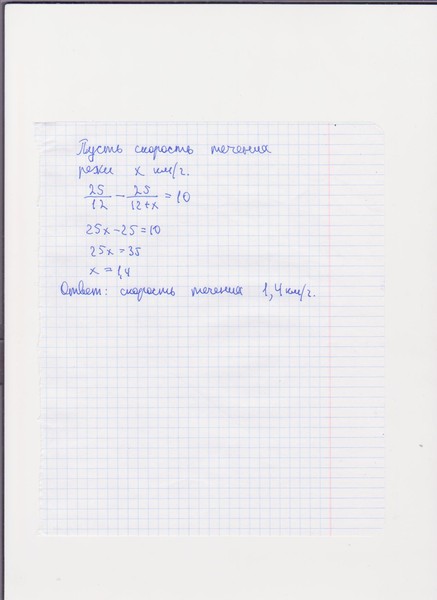 Пусть скорость течения
реки x км/г.
25/12 − 25/12+x = 10
25x − 25 = 10
25x = 35
x = 1,4
Ответ: скорость течения 1,4 км/г.